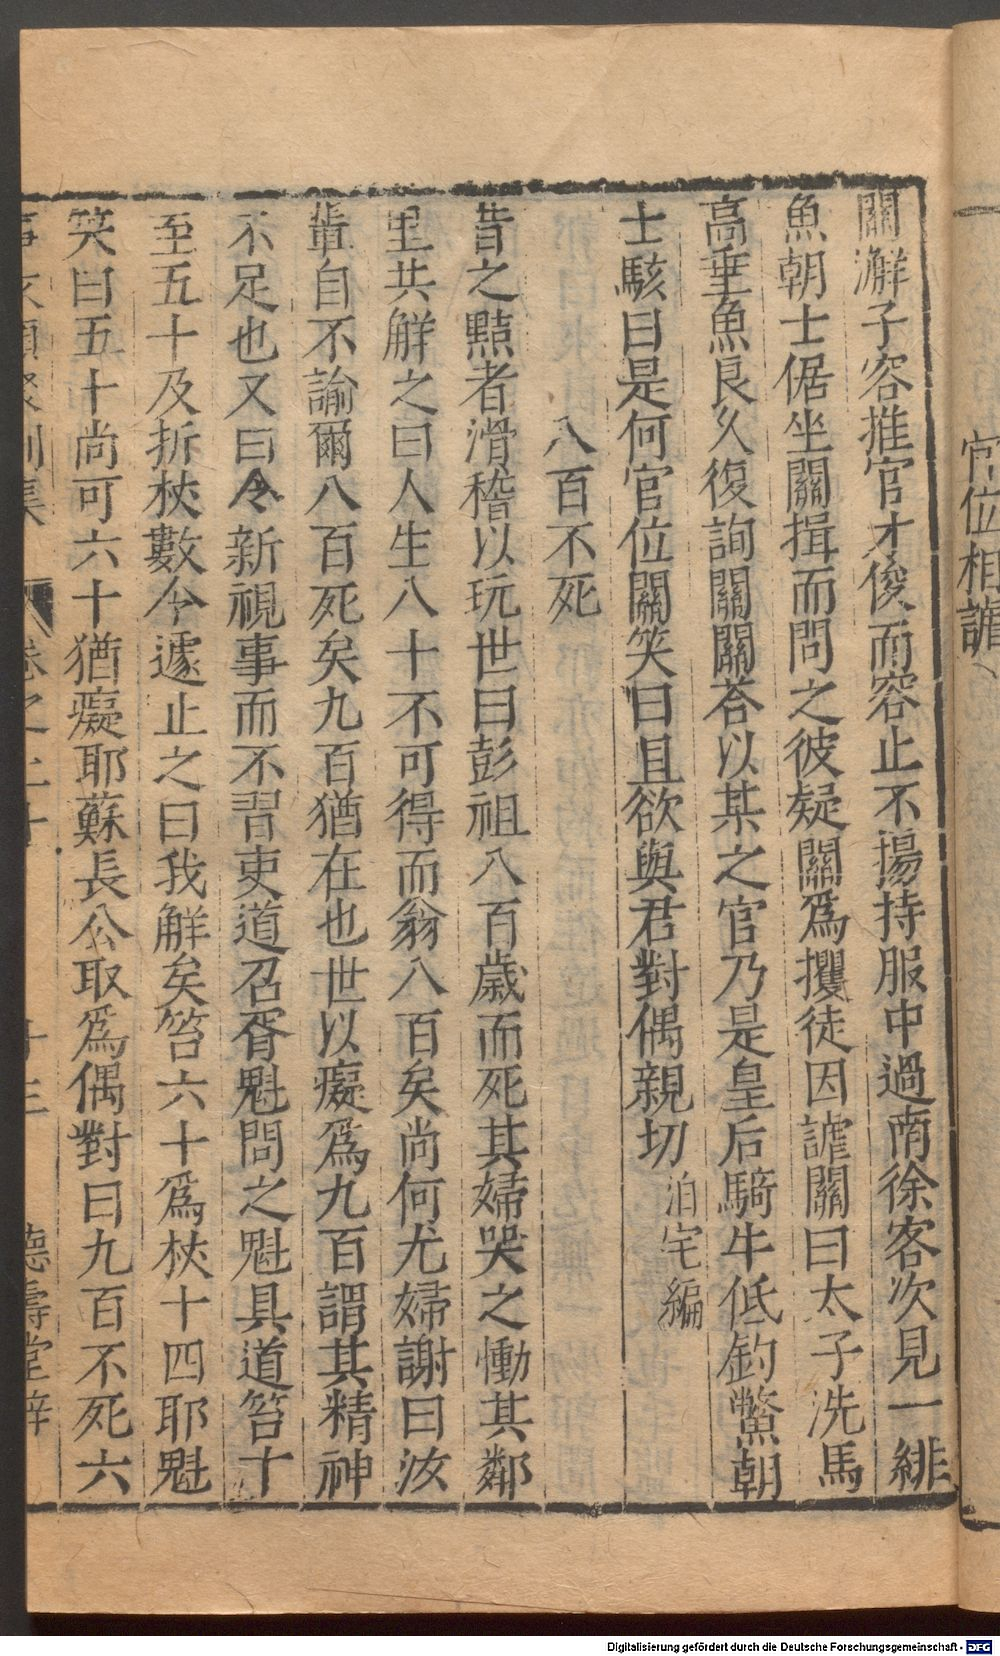 官位相謔
關澥子容推官才俊而容止不揚持服中過南徐客次見一緋
魚朝士倨坐關揖而問之彼疑關爲攫徒因謔關曰太子洗馬
高垂魚良久復詢關關荅以某之官乃是皇后騎牛低釣鱉朝
士駭曰是何官位關笑曰且欲與君對偶親切 泊宅編
八百不死
昔之黠者滑稽以玩世曰彭祖八百歲而死其婦哭之慟其鄰
里共觧之曰人生八十不可得而翁八百矣尚何尤婦謝曰汝
輩自不諭爾八百死矣九百猶在也世以癡爲九百謂其精神
不足也又曰令新視事而不習吏道召胥魁問之魁具道笞十
至五十及折杖數令遽止之曰我觧矣笞六十爲杖十四耶魁
笑曰五十尚可六十猶癡耶蘇長公取爲偶對曰九百不死六
卷之二十
十三
德壽堂梓
Digitalisierung gefördert durch die Deutsche Forschungsgemeinschaft - DFG